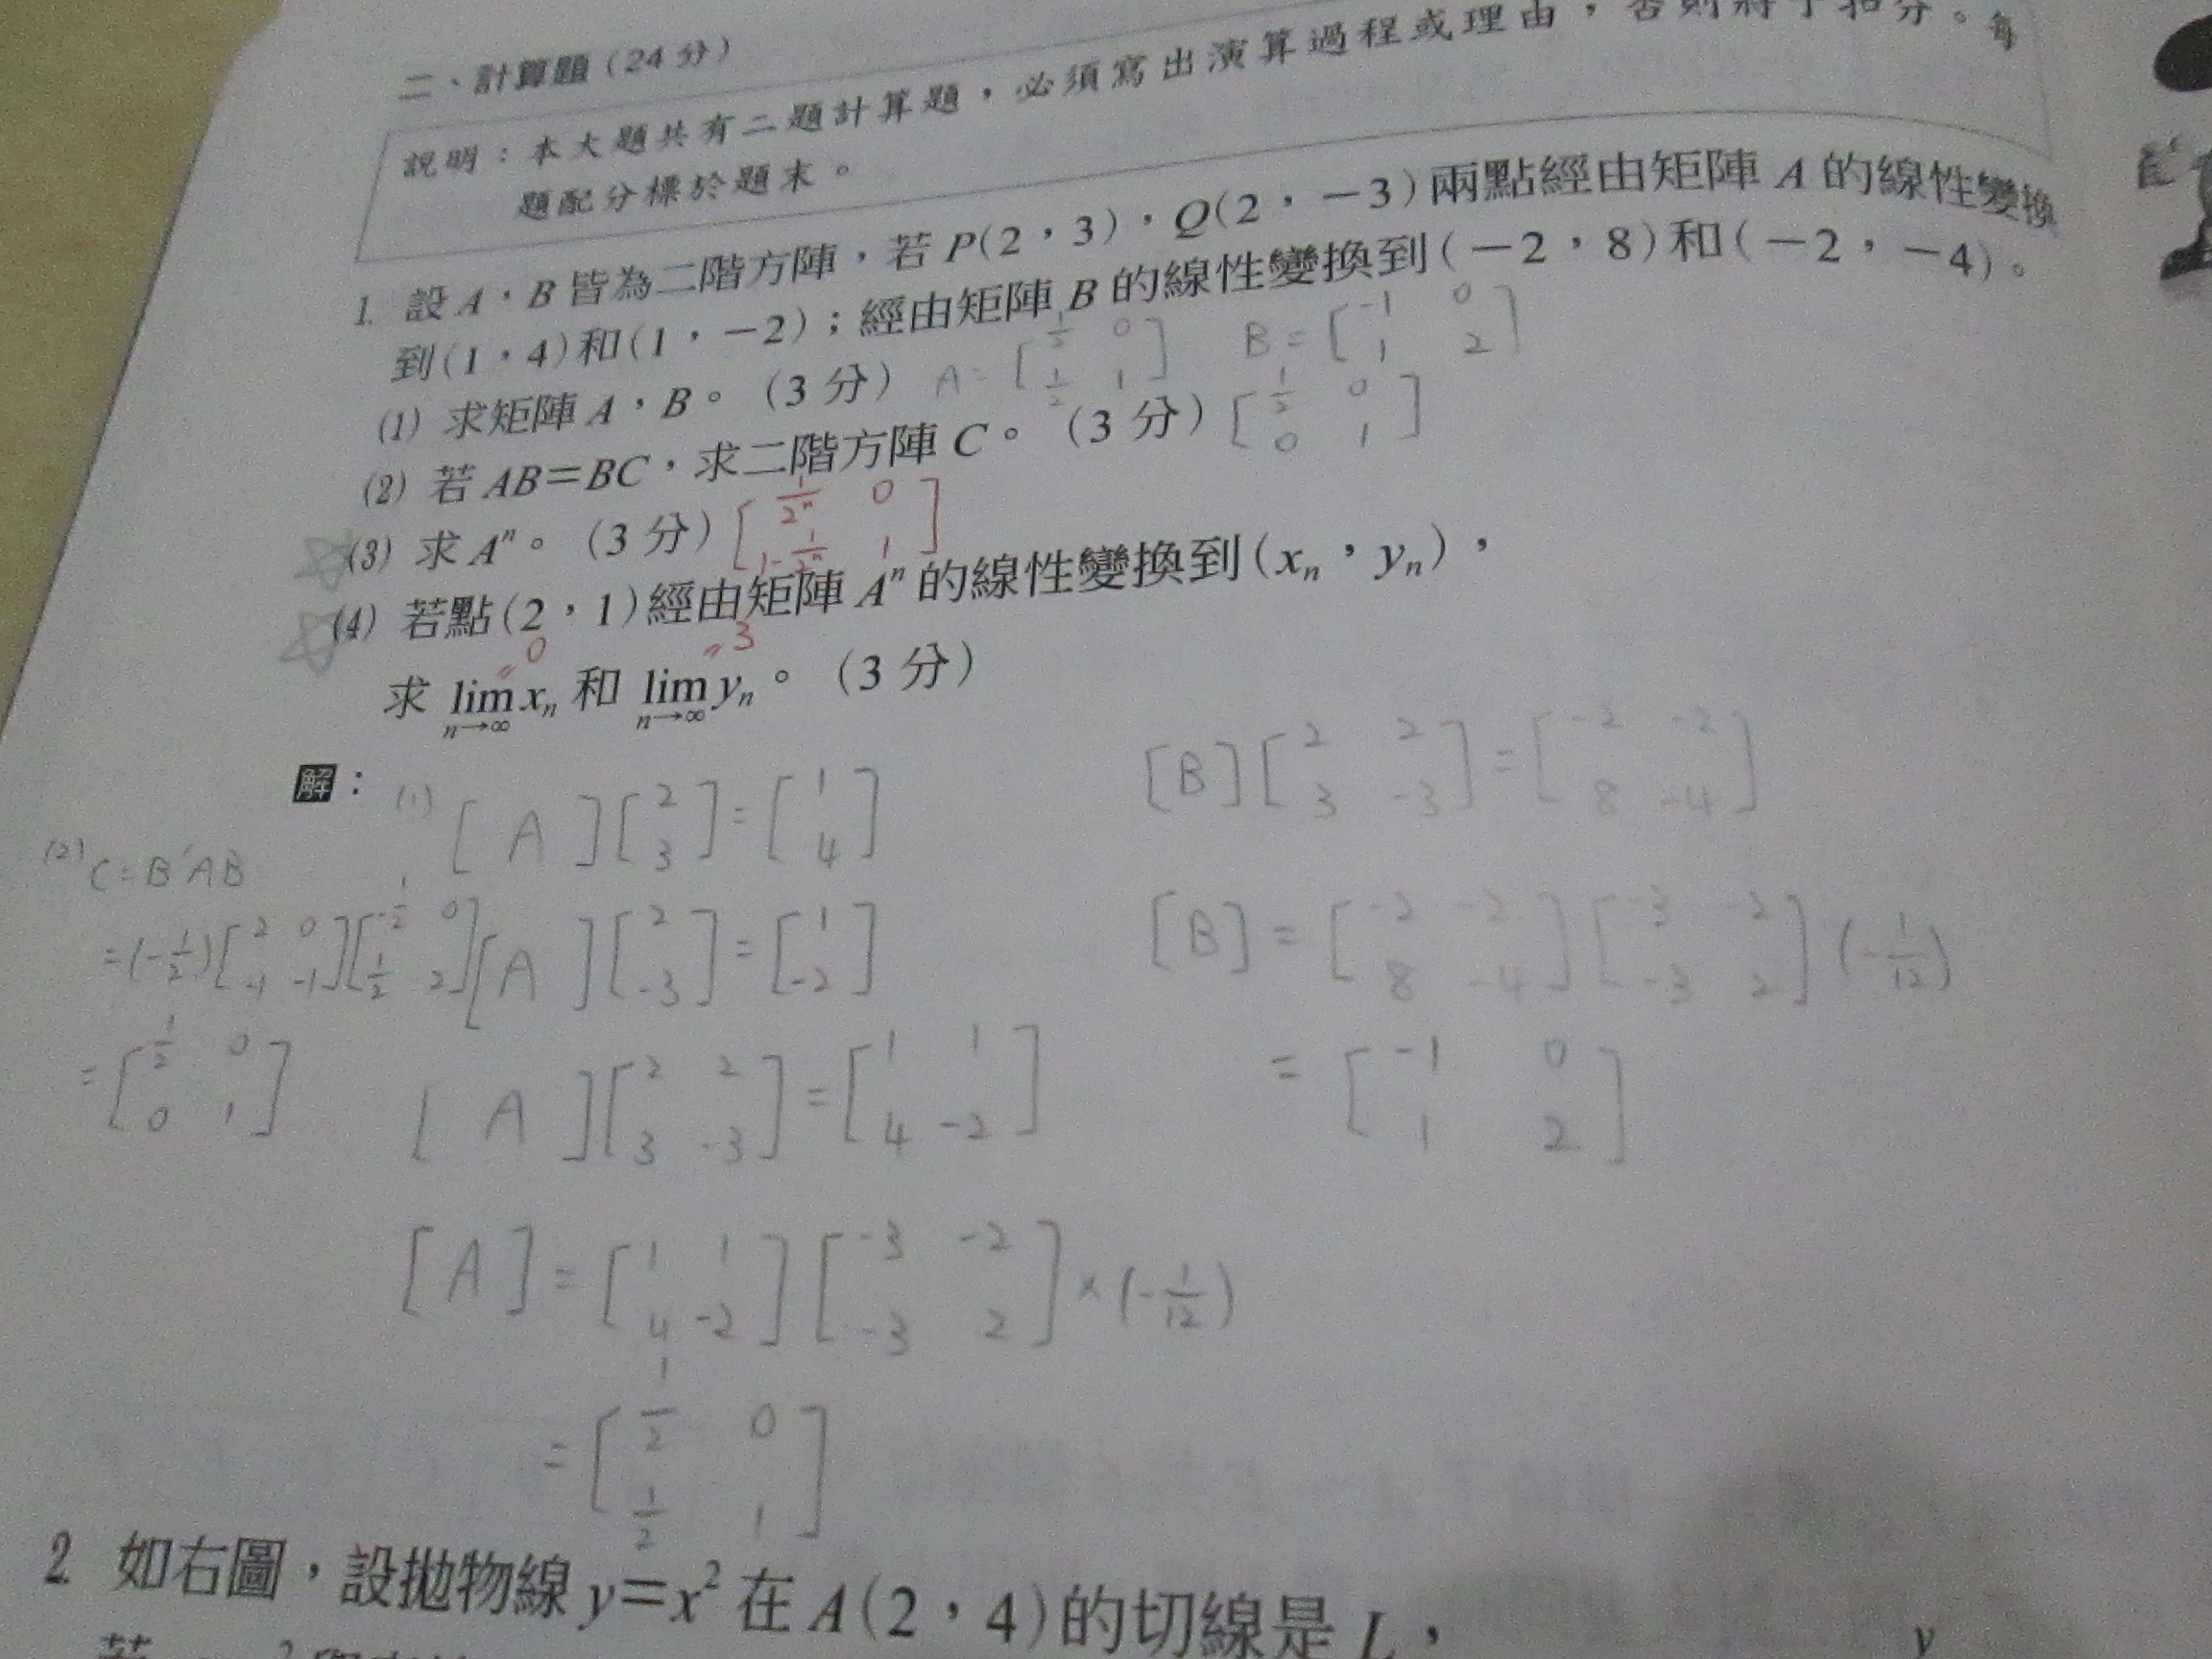 二、計算題(24分)
說明：本大題共有二題計算題，必須寫出演算過程或理由，否則將予扣分。每
題配分標於題末。
1. 設 A，B 皆為二階方陣，若 P(2，3)，Q(2，－3)兩點經由矩陣 A 的線性變換
到(1，4)和(1，－2)；經由矩陣 B 的線性變換到(－2，8)和(－2，－4)。
(1) 求矩陣 A，B。(3 分) A = [1/2 0; 1/2 1] B = [-1 0; 1 2]
(2) 若 AB＝BC，求二階方陣 C。(3 分) [1/2 0; 0 1]
(3) 求 Aⁿ。(3 分) [1/2ⁿ 0; 1-1/2ⁿ 1]
(4) 若點(2，1)經由矩陣 Aⁿ 的線性變換到(xₙ，yₙ)，
=0 =3
求 lim n→∞ xₙ 和 lim n→∞ yₙ。(3 分)
解：
(1) [A][2; 3] = [1; 4]
[A][2; -3] = [1; -2]
[A][2 2; 3 -3] = [1 1; 4 -2]
[A] = [1 1; 4 -2][-3 -2; -3 2] × (-1/12)
= [1/2 0; 1/2 1]
[B][2 2; 3 -3] = [-2 -2; 8 -4]
[B] = [-2 -2; 8 -4][-3 -2; -3 2](-1/12)
= [-1 0; 1 2]
(2) C = B⁻¹AB
= (-1/2)[2 0; -1 -1][-1/2 0; 1/2 2]
= [1/2 0; 0 1]
2. 如右圖，設拋物線 y＝x² 在 A(2，4)的切線是 L，
y